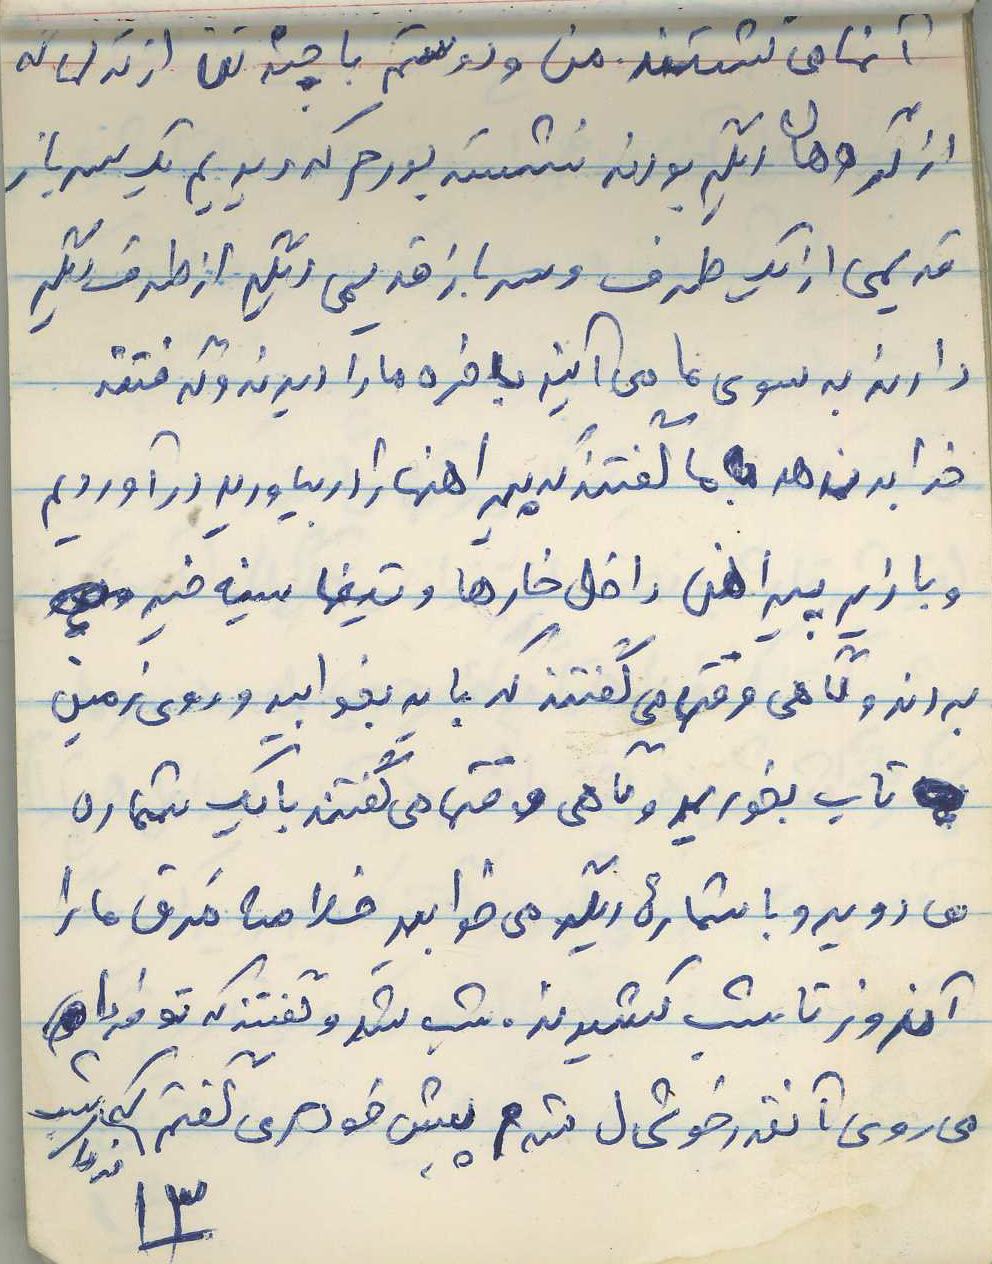 آنها می نشستند. من و دوستم با چند تن از آنها که
از گروهان دیگر بودند نشسته بودیم که دیدیم یک سرباز
قدیمی از یک طرف و سرباز قدیمی دیگر از طرف دیگر
دارند به سوی ما می آیند بلاخره ما را دیدند و گفتند
خدا بد ندهد به ما گفتند که پیراهنها را در بیاورید در آوردیم
و با زیر پیراهن داخل خارها و تیغها سینه خیز
بردند و گاهی وقتها می گفتند که باید بخوابید و روی زمین
تاب بخورید و گاهی وقتها می گفتند با یک شماره
می دوید و با شمارهٔ دیگر می خوابید خلاصه عرق ما را
آنروز تا شب کشیدند. شب شد و گفتند که تو فردا
می روی آنقدر خوشحال شدم پیش خودم می گفتم کی شب
فردا
۱۳